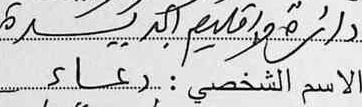 دائرة و اقليم الجديدة
الاسم الشخصي : دعاء